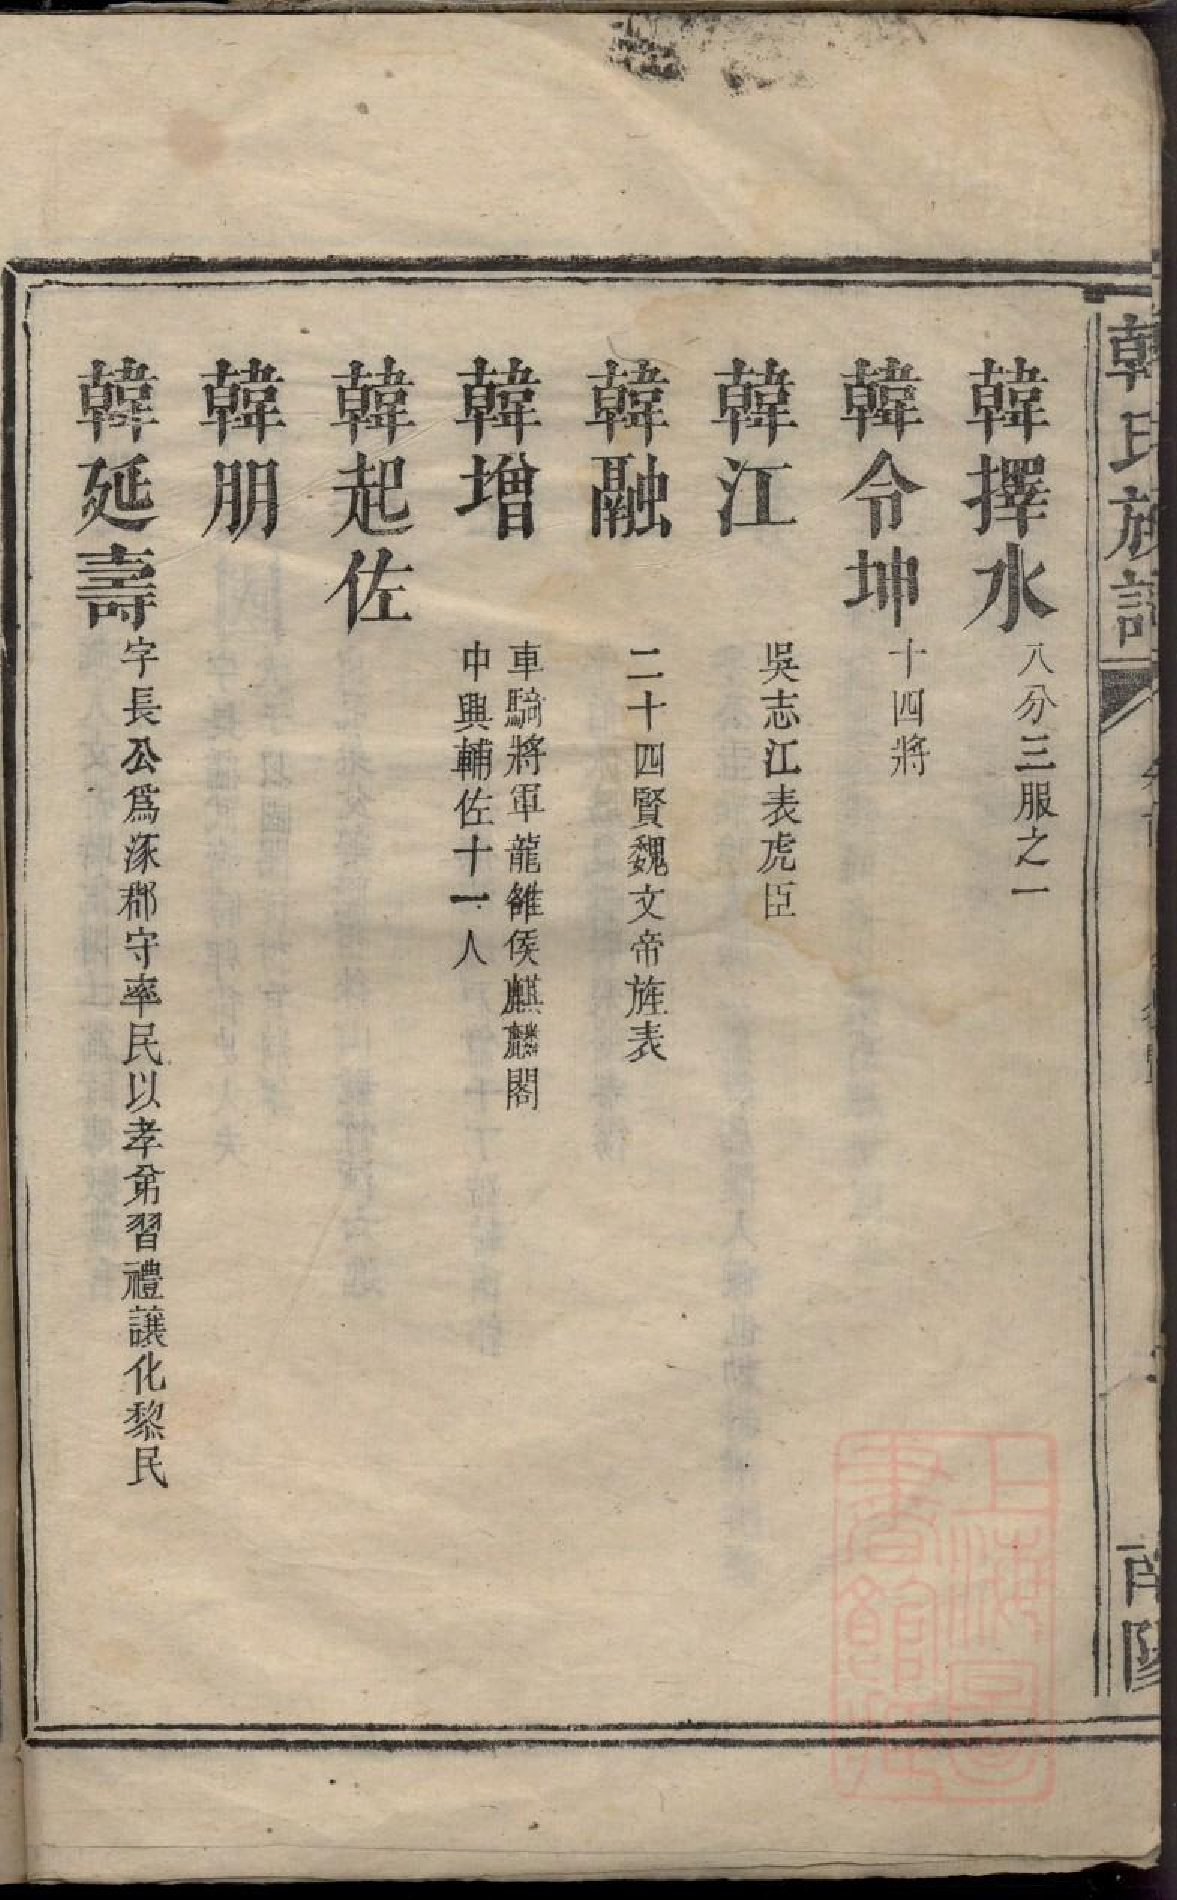 韓氏族譜
南陽
韓擇水 八分三服之一
韓令坤 十四將
韓江 吳志江表虎臣
韓融 二十四賢魏文帝旌表
韓增 車騎將軍龍雒侯麒麟閣
中興輔佐十一人
韓起佐
韓朋
韓延壽 字長公爲涿郡守率民以孝弟習禮讓化黎民
上海圖
書館藏